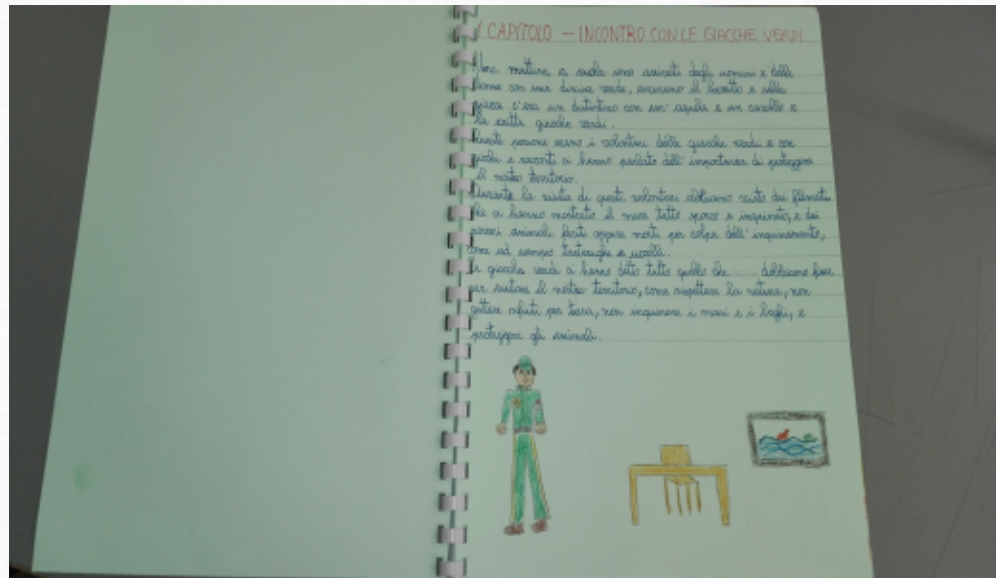 1 CAPITOLO – INCONTRO CON LE GIACCHE VERDI
Una mattina a scuola sono arrivati degli uomini e delle
donne con una divisa verde, avevano il berretto e sulla
giacca c'era un distintivo con un'aquila e un cavallo e
la scritta giacche verdi.
Queste persone erano i volontari delle giacche verdi e con
giochi e racconti ci hanno parlato dell'importanza di proteggere
il nostro territorio.
Durante la visita di questi volontari abbiamo visto dei filmati
che ci hanno mostrato il mare tutto sporco e inquinato, e dei
poveri animali feriti oppure morti per colpa dell'inquinamento,
come ad esempio tartarughe e uccelli.
Le giacche verdi ci hanno detto tutto quello che dobbiamo fare
per aiutare il nostro territorio, come rispettare la natura, non
gettare rifiuti per terra, non inquinare i mari e i laghi, e
proteggere gli animali.